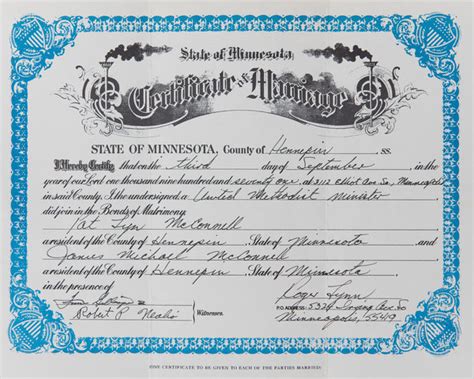 State of Minnesota
Certificate of Marriage
STATE OF MINNESOTA, County of Hennepin ss.
I Hereby Certify that on the third day of September, in the
year of our Lord one thousand nine hundred and seventy one at 3112 Elliot Ave So, Minneapolis
in said County I, the undersigned a United Methodist Minister
did join in the Bonds of Matrimony:
Pat Lyn McConnell
a resident of the County of Hennepin, State of Minnesota and
James Michael McConnell
a resident of the County of Hennepin, State of Minnesota
in the presence of
Roger Lynn
Robert P. Witnesses. P.O. ADDRESS: 5324 Irving Ave. So
Minneapolis, 55419
ONE CERTIFICATE TO BE GIVEN TO EACH OF THE PARTIES MARRIED